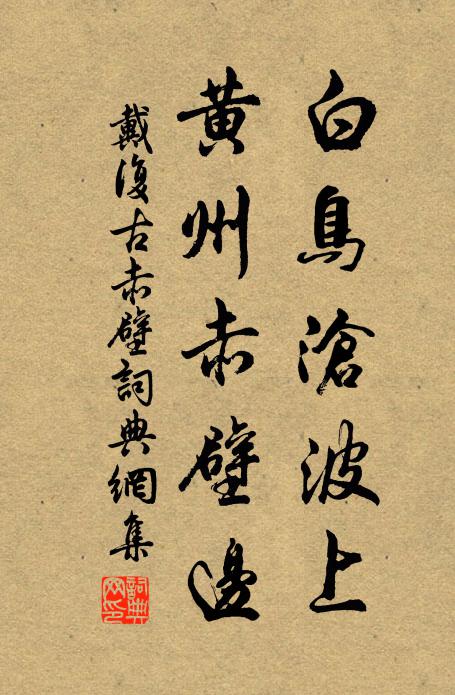 白鳥滄波上
黃州赤壁邊
戴復古赤壁詞典網集
詞典網印